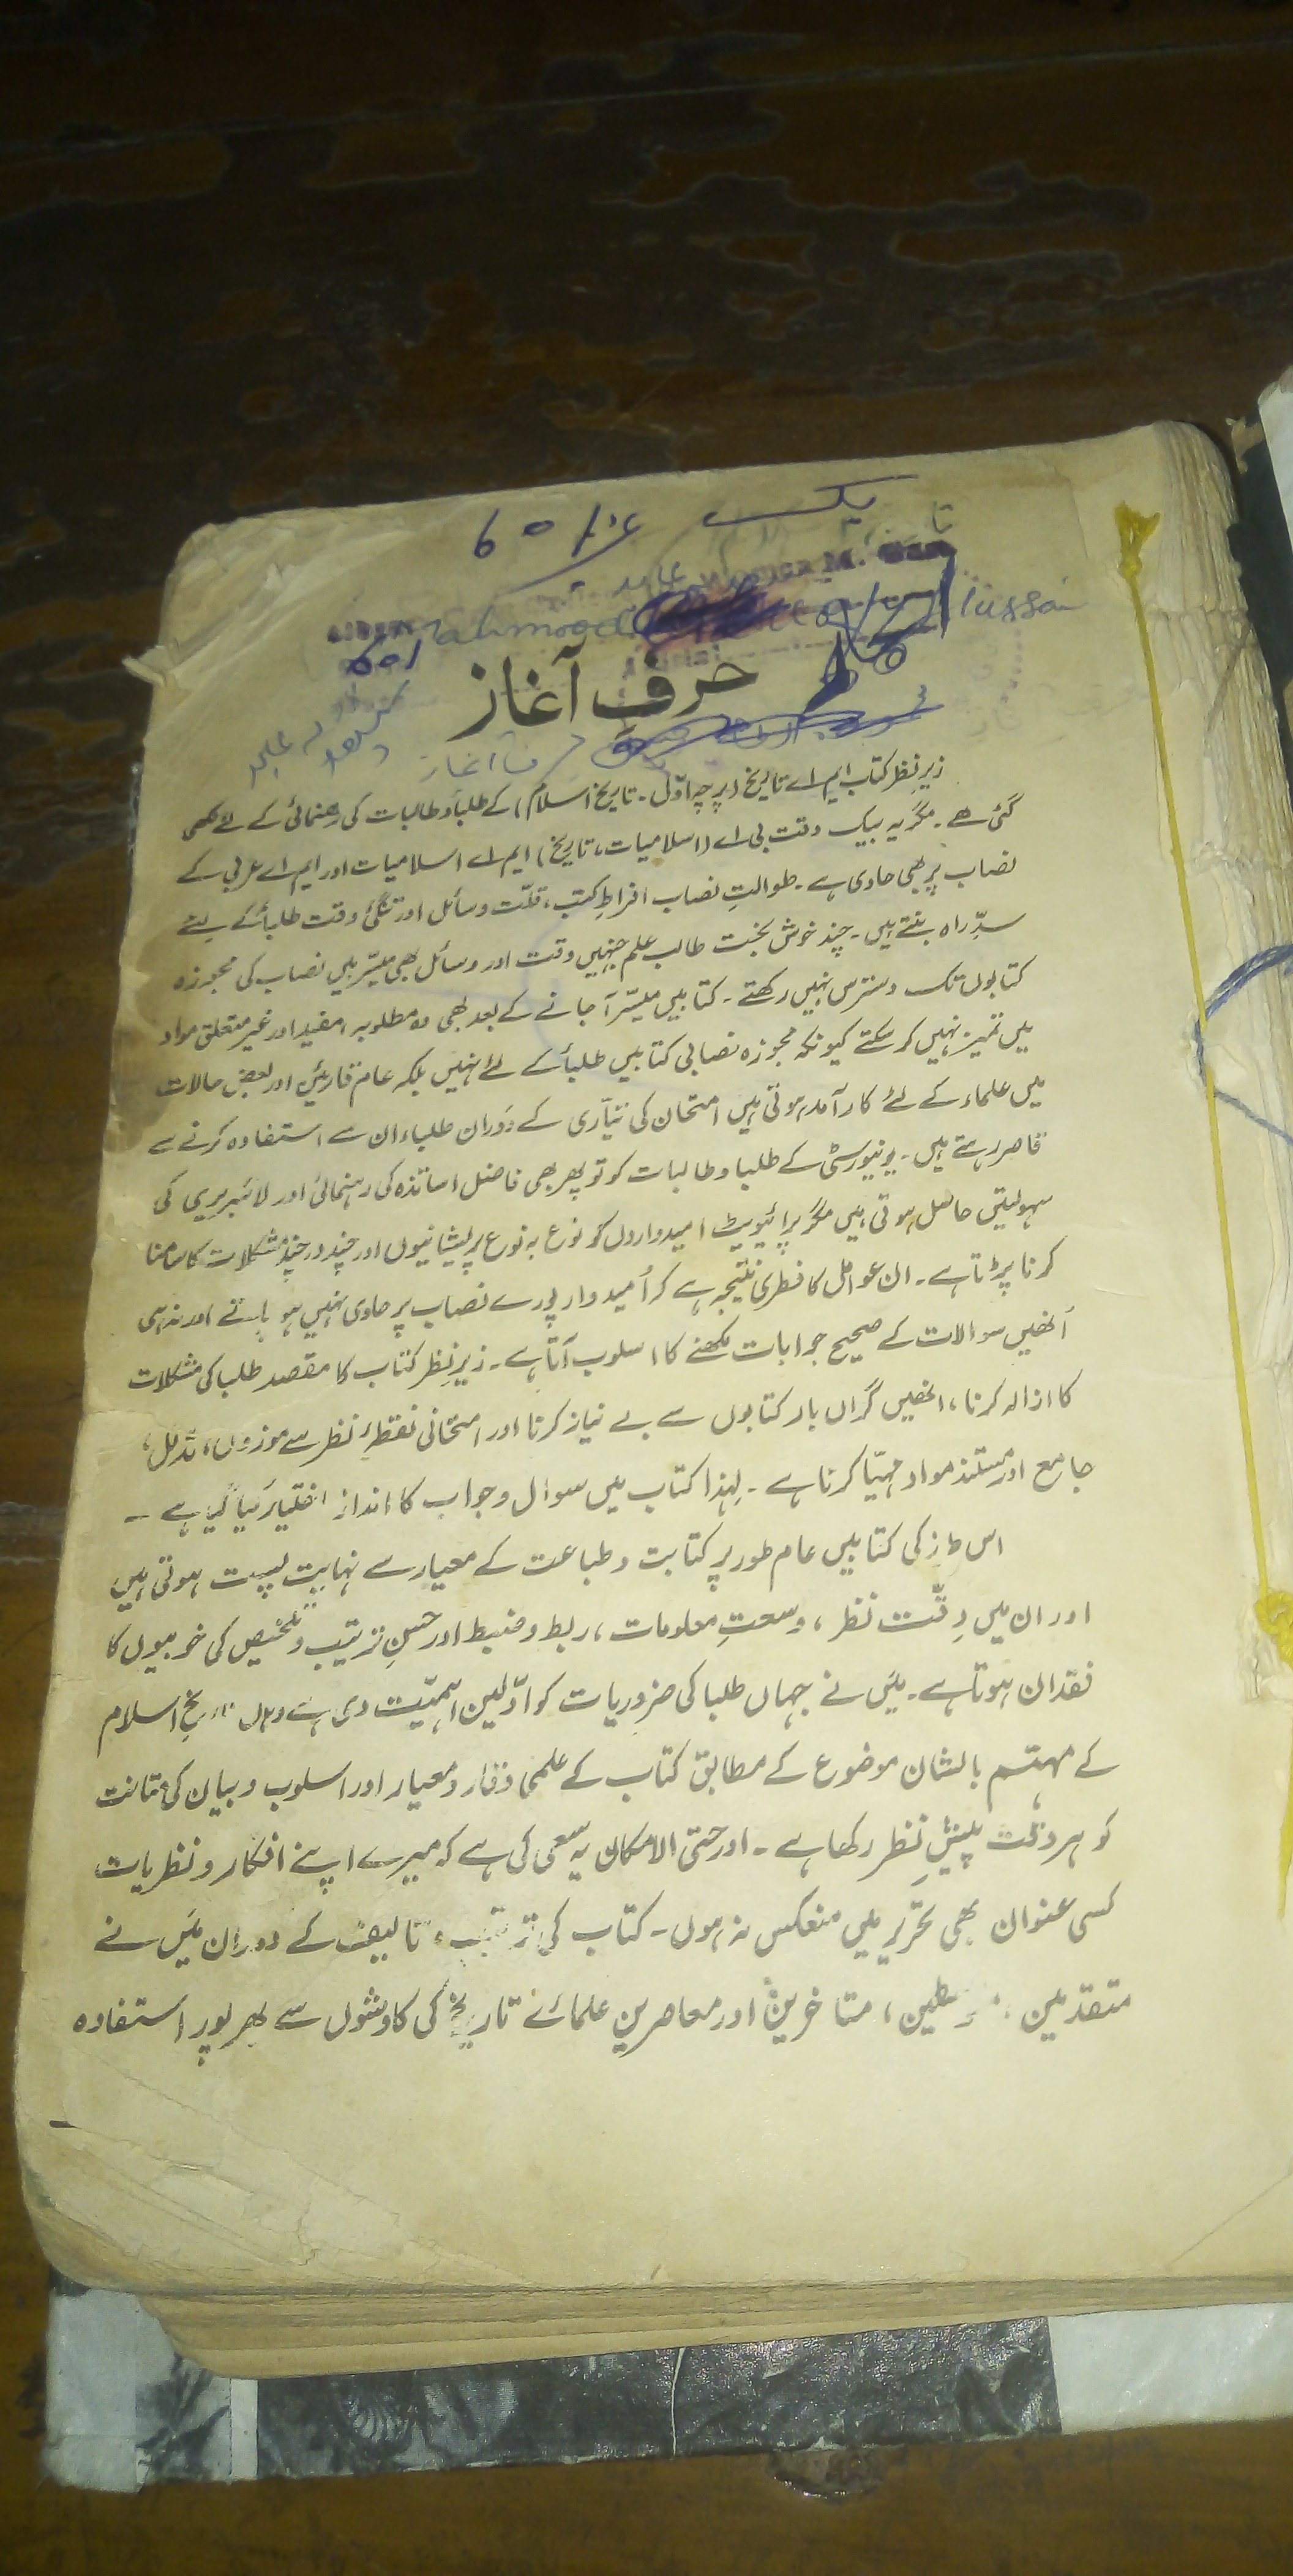 حرفِ آغاز
زیرِ نظر کتاب ایم اے تاریخ (پرچہ اوّل ۔ تاریخ اسلام) کے طلبأ و طالبات کی رہنمائی کے لئے لکھی
گئی ہے ۔ مگر یہ بیک وقت بی اے (اسلامیات، تاریخ) ایم اے اسلامیات اور ایم اے عربی کے
نصاب پر بھی حاوی ہے ۔ طوالتِ نصاب افراطِ کتب، قلّت وسائل اور تنگئ وقت طلبأ کے لئے
سدِّ راہ بنتے ہیں ۔ چند خوش بخت طالب علم جنہیں وقت اور وسائل بھی میسّر ہیں نصاب کی مجوزہ
کتابوں تک دسترس نہیں رکھتے ۔ کتابیں میسّر آ جانے کے بعد بھی وہ مطلوبہ، مفید اور غیر متعلق مواد
میں تمیز نہیں کر سکتے کیونکہ مجوزہ نصابی کتابیں طلبأ کے لئے نہیں بلکہ عام قارئین اور بعض حالات
میں علماء کے لئے کار آمد ہوتی ہیں امتحان کی تیّاری کے دَوران طلباء ان سے استفادہ کرنے سے
قاصر رہتے ہیں ۔ یونیورسٹی کے طلبا و طالبات کو تو پھر بھی فاضل اساتذہ کی رہنمائی اور لائبریری کی
سہولیتیں حاصل ہوتی ہیں مگر پرائیویٹ امیدواروں کو نوع بہ نوع پریشانیوں اور چند در چند مشکلات کا سامنا
کرنا پڑتا ہے ۔ ان عوامل کا فطری نتیجہ ہے کہ اُمیدوار پورے نصاب پر حاوی نہیں ہو پاتے اور نہ ہی
اُنھیں سوالات کے صحیح جوابات لکھنے کا اسلوب آتا ہے ۔ زیرِ نظر کتاب کا مقصد طلبا کی مشکلات
کا ازالہ کرنا، انھیں گراں بار کتابوں سے بے نیاز کرنا اور امتحانی نقطۂ نظر سے موزوں، مدّلل،
جامع اور مستند مواد مہیّا کرنا ہے ۔ لہٰذا کتاب میں سوال و جواب کا انداز اختیار کیا گیا ہے ۔
اس طرز کی کتابیں عام طور پر کتابت و طباعت کے معیار سے نہایت پست ہوتی ہیں
اور ان میں دِقّت نظر، وسعتِ معلومات، ربط و ضبط اور حسنِ ترتیب و تلخیص کی خوبیوں کا
فقدان ہوتا ہے ۔ میَں نے جہاں طلبا کی ضروریات کو اوّلین اہمیّت دی ہے وہاں تاریخِ اسلام
کے مہتم بالشان موضوع کے مطابق کتاب کے علمی وقار و معیار اور اسلوب و بیان کی متانت
کو ہر وقت پیشِ نظر رکھا ہے ۔ اور حتی الامکان یہ سعی کی ہے کہ میرے اپنے افکار و نظریات
کسی عنوان بھی تحریر میں منعکس نہ ہوں ۔ کتاب کی تالیف کے دوران میَں نے
متقدّمین، متاخرین اور معاصرین علمائے تاریخ کی کاوشوں سے بھرپور استفادہ